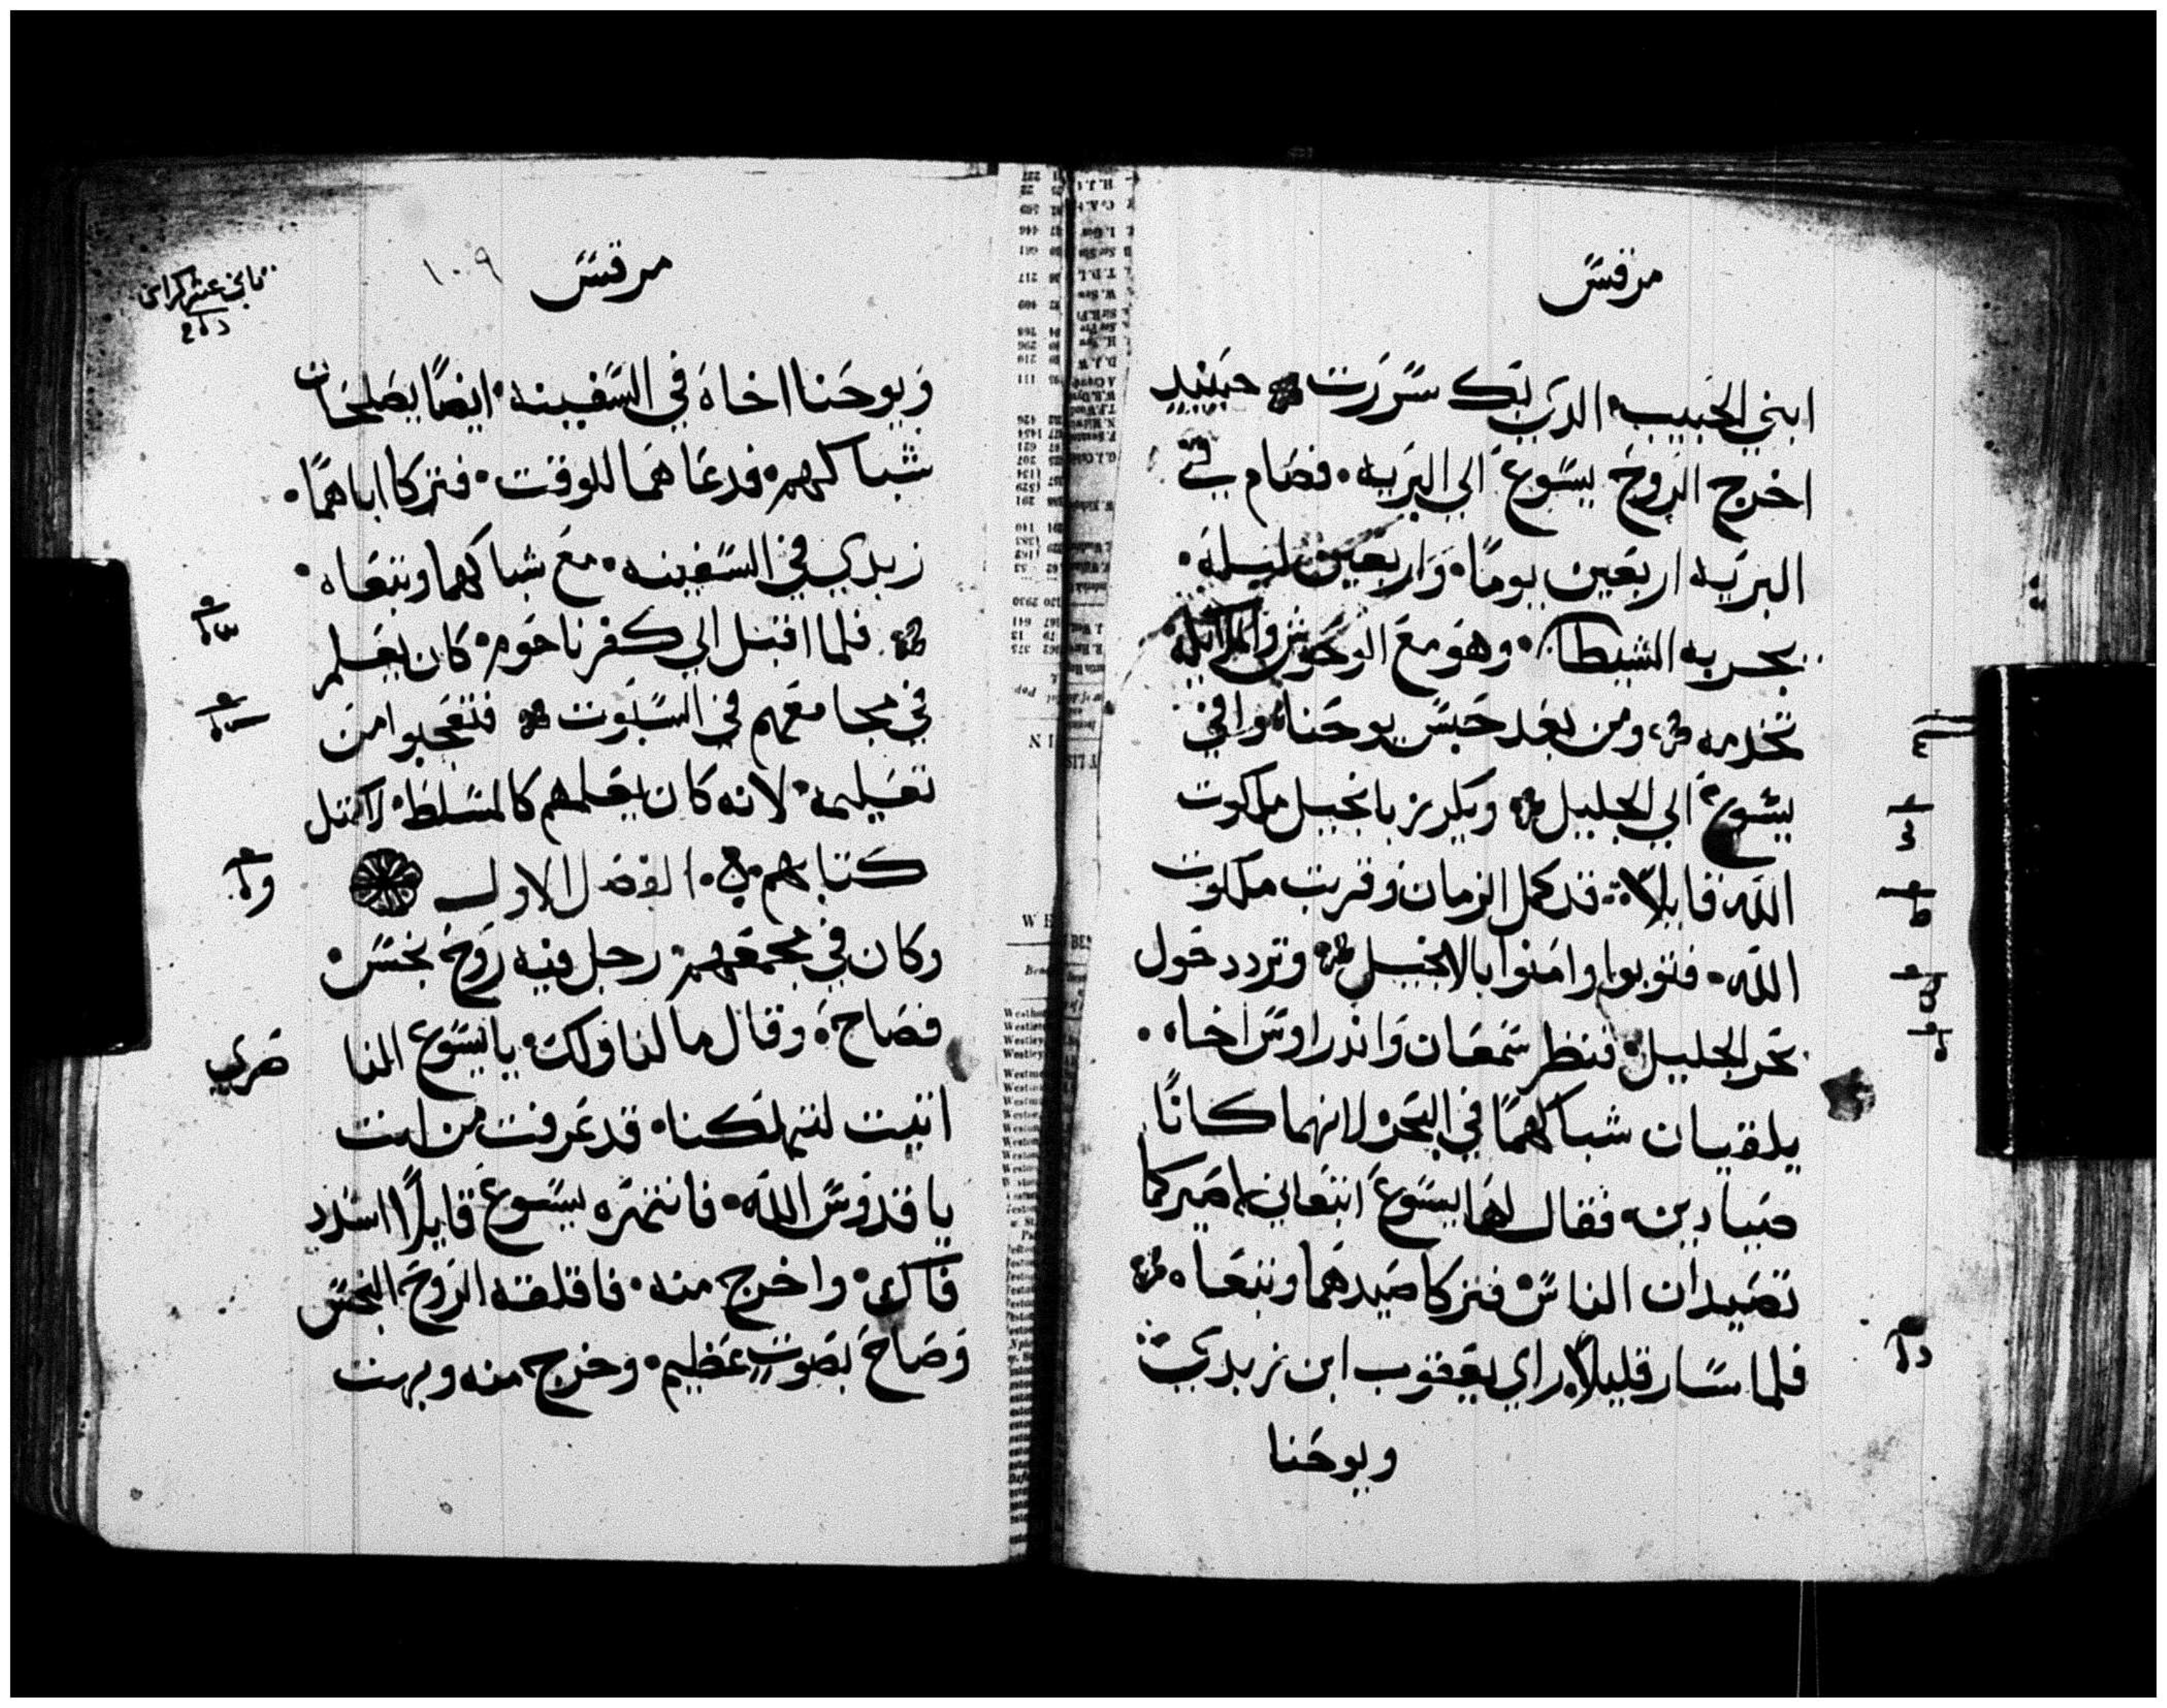 مرقس
ابني الحبيب الدي بك سررت حينيد
اخرج الروح يسوع الي البريه فصام في
البريه اربعين يومًا واربعين ليله
يجربه الشيطان وهو مع الوحوش والملايكه
تخدمه ومن بعد حبس يوحنا وافي
يسوع الي الجليل ويكرز بانجيل ملكوت
الله قايلا قد كمل الزمان وقربت ملكوت
الله فتوبوا وامنوا بالانجيل وتردد حول
بحر الجليل فنظر سمعان واندراوس اخاه
يلقيان شباكهما في البحر لانهما كانا
صيادين فقال لهما يسوع اتبعاني اصيركما
تصيدان الناس فتركا صيدهما وتبعاه
فلما سار قليلاً راي يعقوب ابن زبدي
ويوحنا
مرقس
١٠٩
ثاني عشر كراس
ويوحنا اخاه في السفينه ايضًا يصلحان
شباكهم فدعاهما للوقت فتركا اباهما
زبدي في السفينه مع شباكهما وتبعاه
فلما اقبل الي كفرناحوم كان يعلم
في مجامعهم في السبوت فتعجبوا من
تعليمه لانه كان يعلمهم كالمسلط لا كمثل
كتابهم الفصل الاول
وكان في مجمعهم رجل فيه روح نجس
فصاح وقال مالنا ولك يا يسوع النا
صري
اتيت لتهلكنا قد عرفت من انت
يا قدوس الله فانتهره يسوع قايلاً اسدد
فاك واخرج منه فاقلقه الروح النجس
وصاح بصوت عظيم وخرج منه وبهت